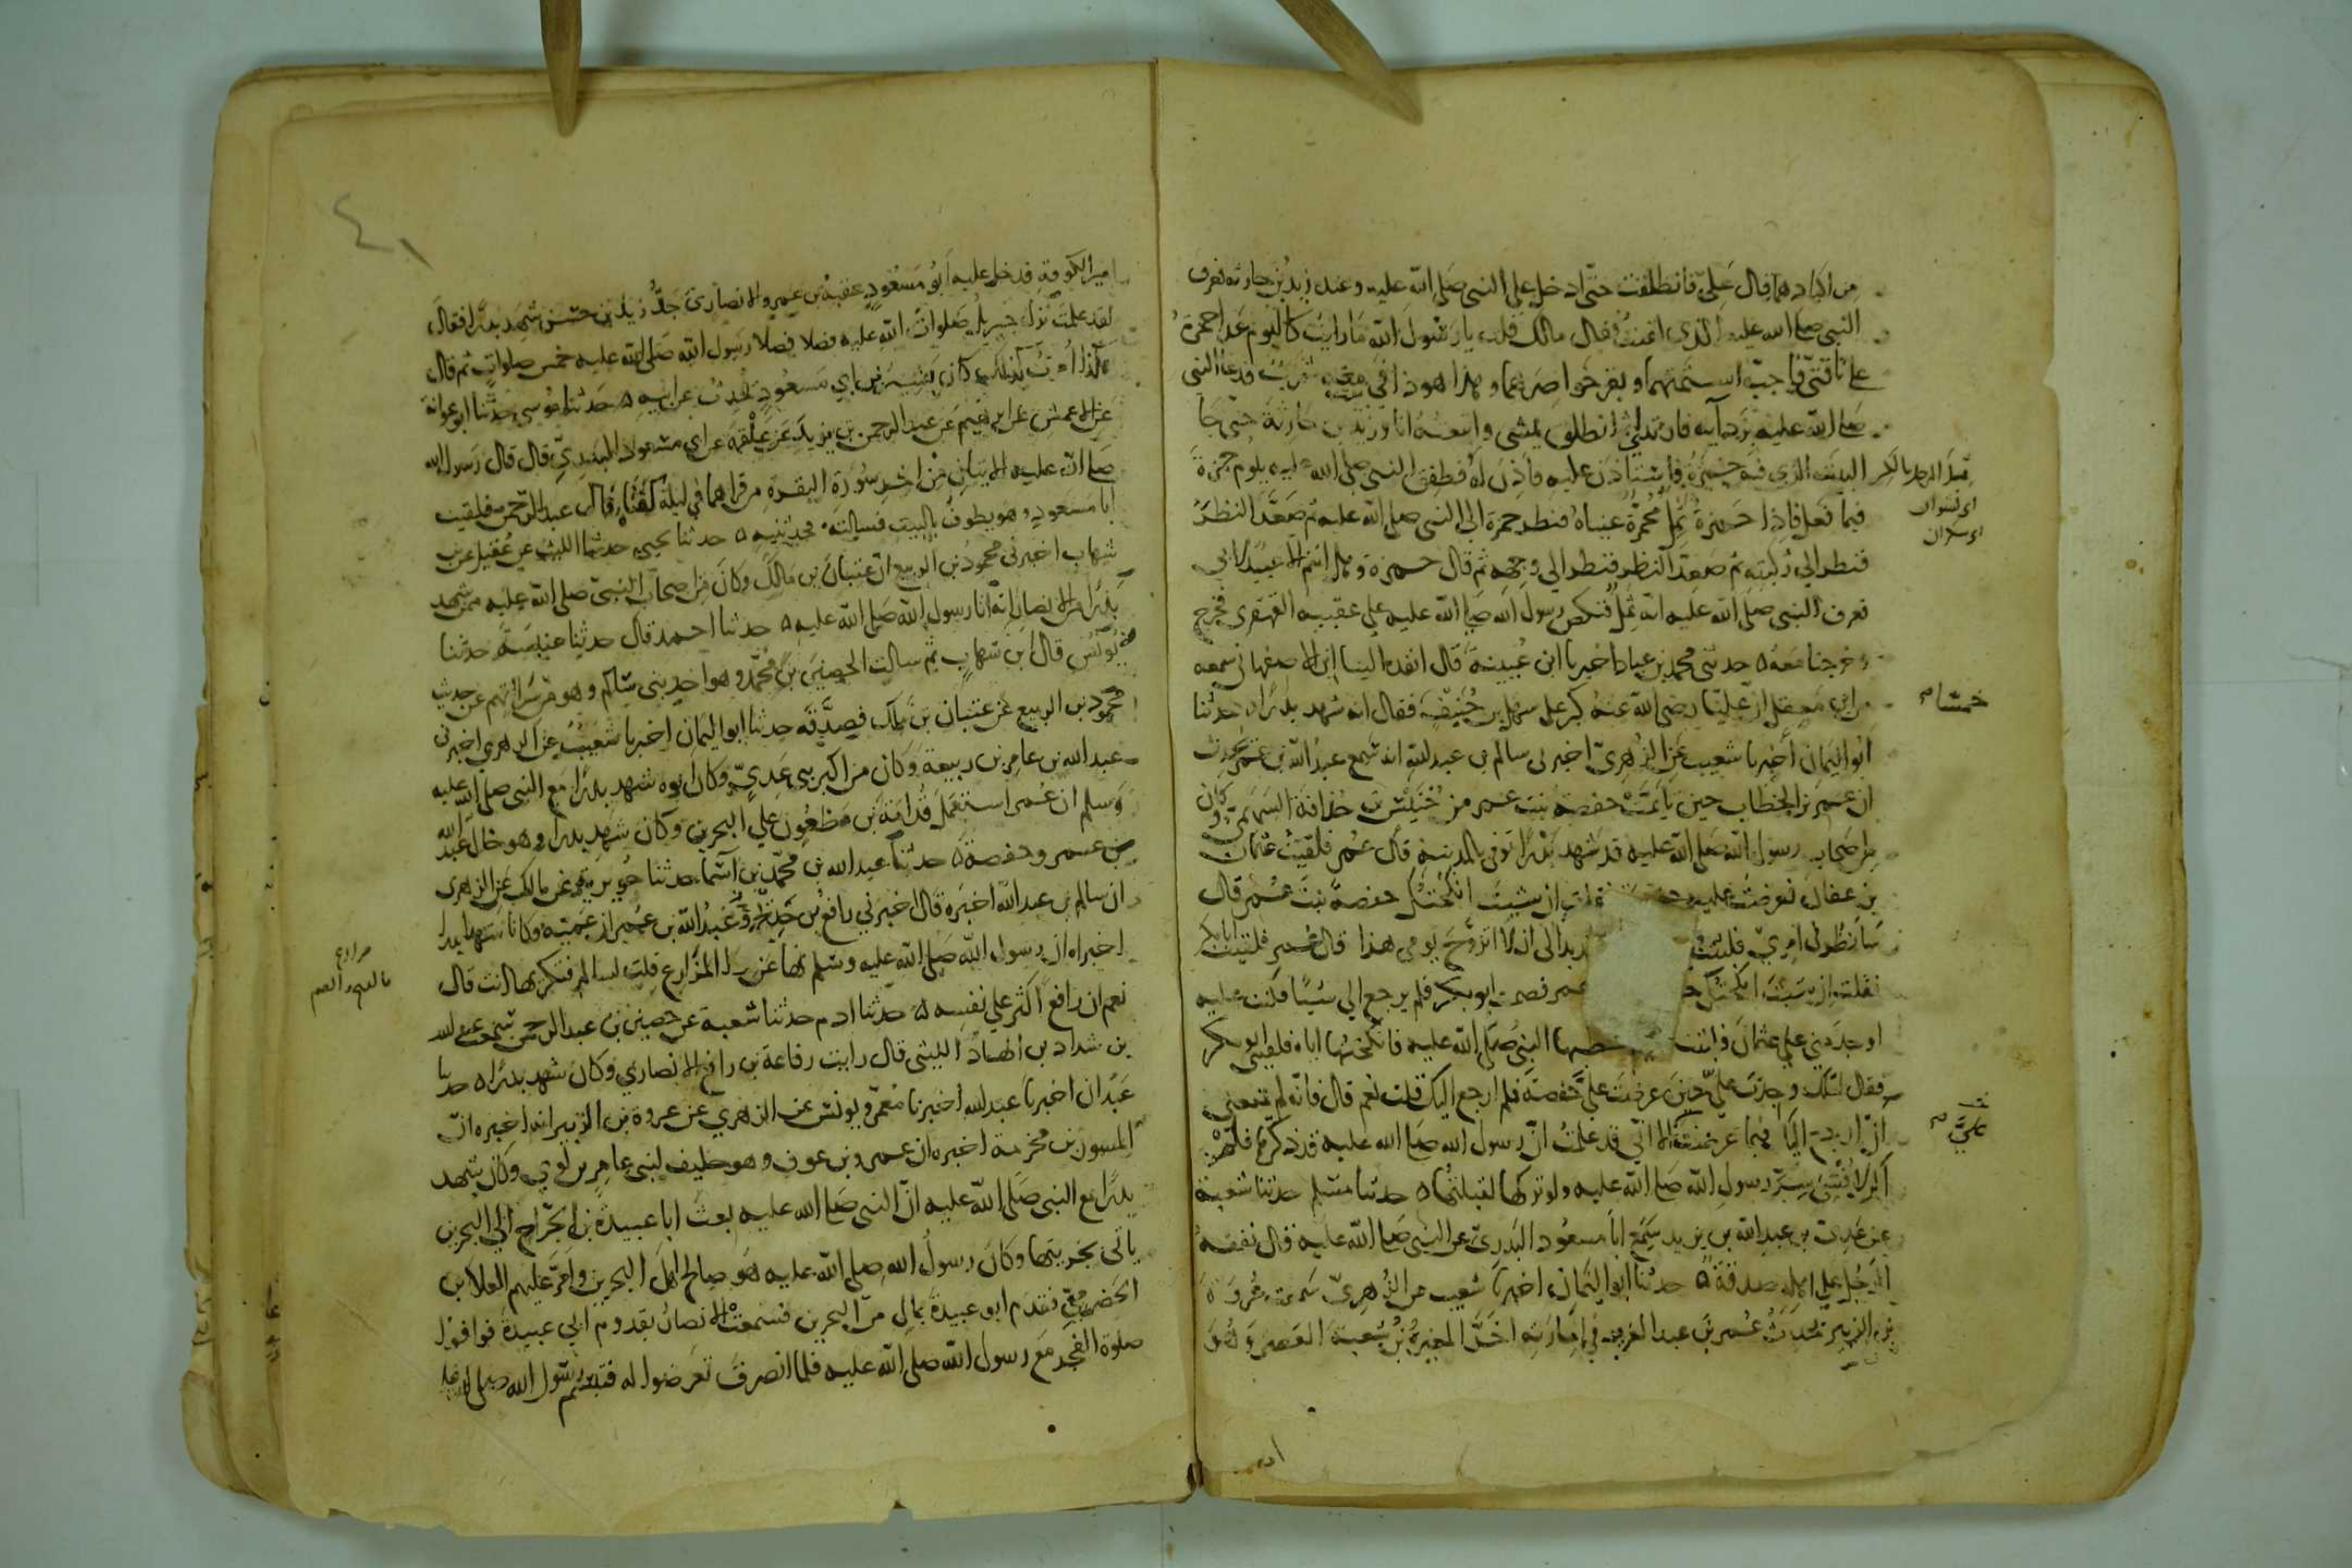 من اكبادهما قال علي فانطلقت حتى ادخل على النبي صلى الله عليه وعنده زيد بن حارثة فعرف
النبي صلى الله عليه الذي لقيت فقال مالك قلت يا رسول الله ما رايت كاليوم عدا حمزة
على ناقتي فاجب اسنمتهما وبقر خواصرهما وها هو ذا في بيت معه شرب فدعا النبي
صلى الله عليه بردايه فارتدى ثم انطلق يمشي واتبعته انا وزيد بن حارثة حتى جا
البيت الذي فيه حمزة فاستاذن عليه فاذن له فطفق النبي صلى الله عليه يلوم حمزة
فيما فعل فاذا حمزة ثمل محمرة عيناه فنظر حمزة الى النبي صلى الله عليه ثم صعد النظر
فنظر الى ركبته ثم صعد النظر فنظر الى وجهه ثم قال حمزة وهل انتم الا عبيد لابي
فعرف النبي صلى الله عليه انه ثمل فنكص رسول الله صلى الله عليه على عقبيه القهقرى فخرج
وخرجنا معه حدثني محمد بن عباد اخبرنا ابن عيينة قال انفذه لنا ابن الاصفهاني سمعه
من ابن معقل ان عليا رضي الله عنه كبر على سهل بن حنيف فقال انه شهد بدرا حدثنا
ابو اليمان اخبرنا شعيب عن الزهري اخبرني سالم بن عبد الله انه سمع عبد الله بن عمر يحدث
ان عمر بن الخطاب حين تايمت حفصة بنت عمر من خنيس بن حذافة السهمي وكان
من اصحاب رسول الله صلى الله عليه قد شهد بدرا توفي بالمدينة قال عمر فلقيت عثمان
بن عفان فعرضت عليه حفصة فقلت ان شيت انكحتك حفصة بنت عمر قال
سانظر في امري فلبثت بدا لي ان لا اتزوج يومي هذا قال عمر فلقيت ابا بكر
فقلت ان شيت انكحتك عمر فصمت ابو بكر فلم يرجع الي شيئا فكنت عليه
اوجد مني على عثمان فلبثت خطبها النبي صلى الله عليه فانكحتها اياه فلقيني ابو بكر
فقال لعلك وجدت علي حين عرضت علي حفصة فلم ارجع اليك قلت نعم قال فانه لم يمنعني
ان ارجع اليك فيما عرضت الا اني قد علمت ان رسول الله صلى الله عليه قد ذكرها فلم
اكن لافشي سر رسول الله صلى الله عليه ولو تركها لقبلتها حدثنا مسلم حدثنا شعبة
عن عدي عن عبد الله بن يزيد سمع ابا مسعود البدري عن النبي صلى الله عليه قال نفقة
الرجل على اهله صدقة حدثنا ابو اليمان اخبرنا شعيب عن الزهري سمعت عروة
بن الزبير يحدث عمر بن عبد العزيز في امارته اخر المغيرة بن شعبة العصر وهو
خمسا
علي
امير الكوفة فدخل عليه ابو مسعود عقبة بن عمرو الانصاري جد زيد بن حسن شهد بدرا فقال
لقد علمت نزل جبريل صلوات الله عليه فصلا فصلا رسول الله صلى الله عليه خمس صلوات ثم قال
هكذا امرت كذلك كان بشير بن ابي مسعود يحدث عن ابيه حدثنا موسى حدثنا ابو عوانة
عن الاعمش عن ابرهيم عن عبد الرحمن بن يزيد عن علقمة عن ابي مسعود البدري قال قال رسول الله
صلى الله عليه الايتان من اخر سورة البقرة من قراهما في ليلة كفتاه قال عبد الرحمن فلقيت
ابا مسعود وهو يطوف بالبيت فسالته فحدثنيه حدثنا يحيى حدثنا الليث عن عقيل عن بن
شهاب اخبرني محمود بن الربيع ان عتبان بن مالك وكان من اصحاب النبي صلى الله عليه ممن شهد
بدرا من الانصار انه اتا رسول الله صلى الله عليه حدثنا احمد قال حدثنا عنبسة حدثنا
يونس قال ابن شهاب ثم سالت الحصين بن محمد وهو احد بني سالم وهو من سراتهم عن حديث
محمود بن الربيع عن عتبان بن مالك فصدقه حدثنا ابو اليمان اخبرنا شعيب عن الزهري اخبرني
عبد الله بن عامر بن ربيعة وكان من اكبر بني عدي وكان ابوه شهد بدرا مع النبي صلى الله عليه
وسلم ان عمر استعمل قدامة بن مظعون على البحرين وكان شهد بدرا وهو خال عبد الله
بن عمر وحفصة حدثنا عبد الله بن محمد بن اسما حدثنا جويرية عن مالك عن الزهري
ان سالم بن عبد الله اخبره قال اخبرني رافع بن خديج عبد الله بن عمر ان عميه وكانا شهدا بدرا
اخبراه ان رسول الله صلى الله عليه وسلم نهى عن كرا المزارع قلت لسالم فتكريها انت قال
نعم ان رافع اكثر على نفسه حدثنا ادم حدثنا شعبة عن حصين بن عبد الرحمن سمعت عبد الله
بن شداد بن الهاد الليثي قال رايت رفاعة بن رافع الانصاري وكان شهد بدرا حدثنا
عبدان اخبرنا عبد الله اخبرنا معمر ويونس عن الزهري عن عروة بن الزبير انه اخبره ان
المسور بن مخرمة اخبره ان عمرو بن عوف وهو حليف لبني عامر بن لوي وكان شهد
بدرا مع النبي صلى الله عليه ان النبي صلى الله عليه بعث ابا عبيدة بن الجراح الى البحرين
ياتي بجزيتها وكان رسول الله صلى الله عليه هو صالح اهل البحرين وامر عليهم العلا بن
الحضرمي فقدم ابو عبيدة بمال من البحرين فسمعت الانصار بقدوم ابي عبيدة فوافوا
صلوة الفجر مع رسول الله صلى الله عليه فلما انصرف تعرضوا له فتبسم رسول الله صلى الله عليه